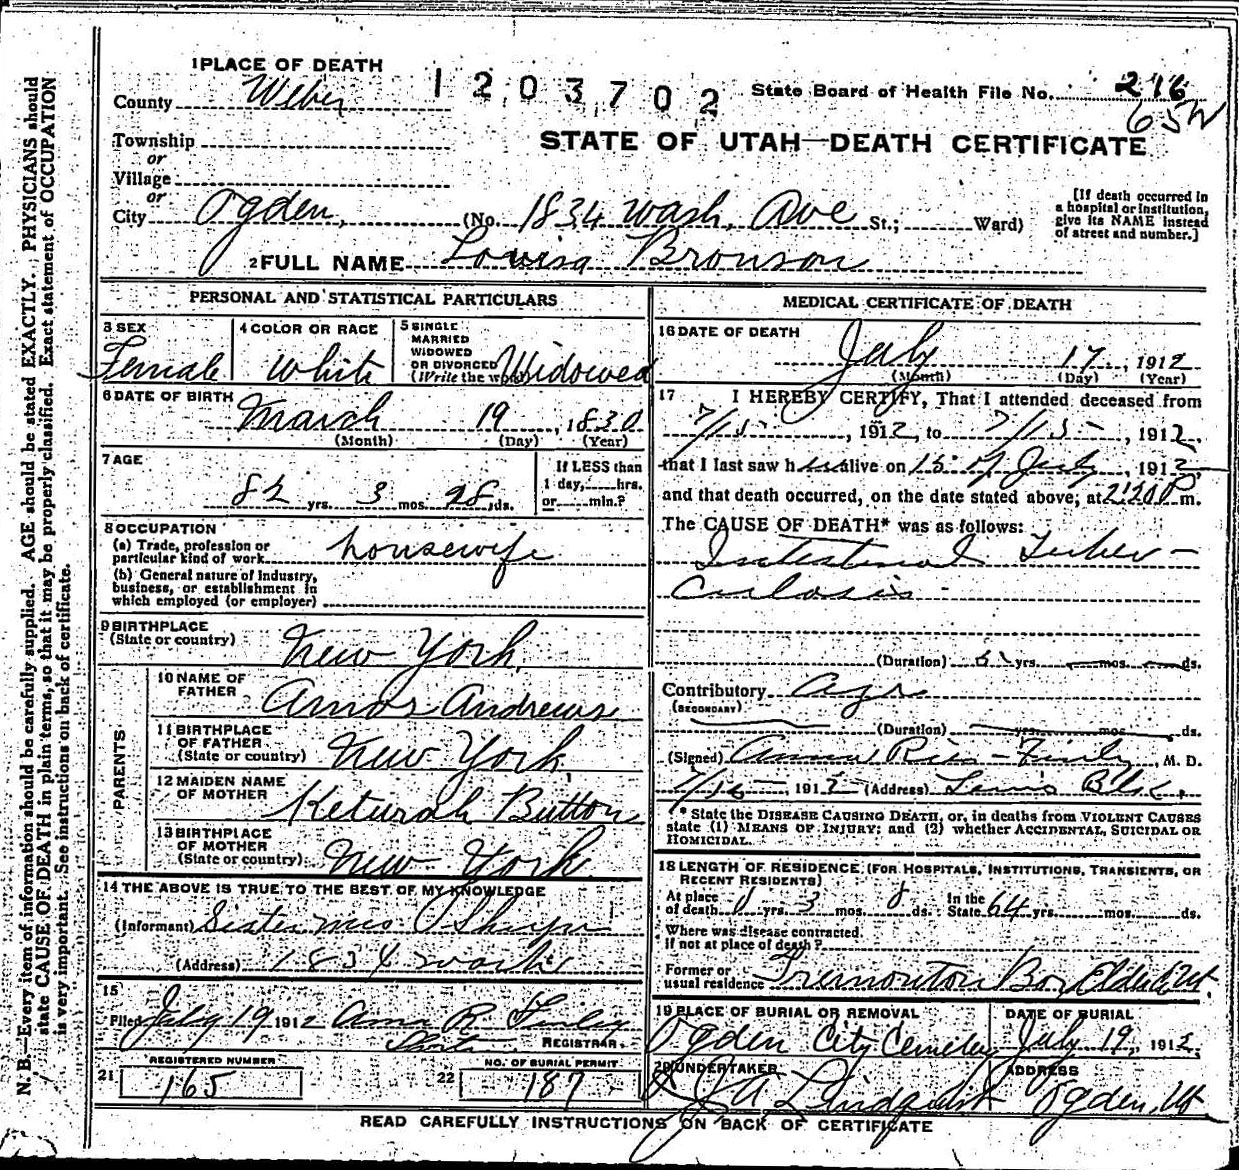 1 PLACE OF DEATH
County Weber
1203702
State Board of Health File No. 216
65W
Township
or
Village
or
STATE OF UTAH—DEATH CERTIFICATE
City Ogden, (No. 1834 Wash. Ave St.; Ward)
[If death occurred in
a hospital or institution,
give its NAME instead
of street and number.]
2 FULL NAME Louisa Bronson
PERSONAL AND STATISTICAL PARTICULARS
3 SEX
Female
4 COLOR OR RACE
White
5 SINGLE
MARRIED
WIDOWED
OR DIVORCED
(Write the word)
Widowed
6 DATE OF BIRTH
March 19, 1830
(Month) (Day) (Year)
7 AGE
82 yrs. 3 mos. 28 ds.
If LESS than
1 day, hrs.
or min.?
8 OCCUPATION
(a) Trade, profession or
particular kind of work housewife
(b) General nature of industry,
business, or establishment in
which employed (or employer)
9 BIRTHPLACE
(State or country) New York
PARENTS
10 NAME OF
FATHER Amos Andrews
11 BIRTHPLACE
OF FATHER
(State or country) New York
12 MAIDEN NAME
OF MOTHER Keturah Button
13 BIRTHPLACE
OF MOTHER
(State or country) New York
14 THE ABOVE IS TRUE TO THE BEST OF MY KNOWLEDGE
(Informant) Sister Mrs
(Address) 1834 Wash
15
Filed July 19 1912 Anna R Finley
REGISTRAR.
21 REGISTERED NUMBER
165
22 NO. OF BURIAL PERMIT
187
MEDICAL CERTIFICATE OF DEATH
16 DATE OF DEATH
July 17, 1912
(Month) (Day) (Year)
17 I HEREBY CERTIFY, That I attended deceased from
7/15, 1912, to 7/15, 1912,
that I last saw her alive on 15 of July, 1912,
and that death occurred, on the date stated above, at P m.
The CAUSE OF DEATH* was as follows:
Intestinal Tuber-
culosis
(Duration) yrs. mos. ds.
Contributory Age
(SECONDARY)
(Duration) yrs. mos. ds.
(Signed) Anna Ries-Finley, M. D.
7/16, 1912 (Address) Lewis Blk.
* State the DISEASE CAUSING DEATH, or, in deaths from VIOLENT CAUSES
state (1) MEANS OF INJURY; and (2) whether ACCIDENTAL, SUICIDAL OR
HOMICIDAL.
18 LENGTH OF RESIDENCE (FOR HOSPITALS, INSTITUTIONS, TRANSIENTS, OR
RECENT RESIDENTS)
At place
of death 0 yrs. 3 mos. 0 ds. In the
State 64 yrs. mos. ds.
Where was disease contracted.
If not at place of death?
Former or
usual residence Tremonton Box Elder Ut.
19 PLACE OF BURIAL OR REMOVAL
Ogden City Cemetery
DATE OF BURIAL
July 19, 1912
20 UNDERTAKER
J A Lindquist
ADDRESS
Ogden, Ut
READ CAREFULLY INSTRUCTIONS ON BACK OF CERTIFICATE
N. B.—Every item of information should be carefully supplied. AGE should be stated EXACTLY. PHYSICIANS should
state CAUSE OF DEATH in plain terms, so that it may be properly classified. Exact statement of OCCUPATION
is very important. See instructions on back of certificate.